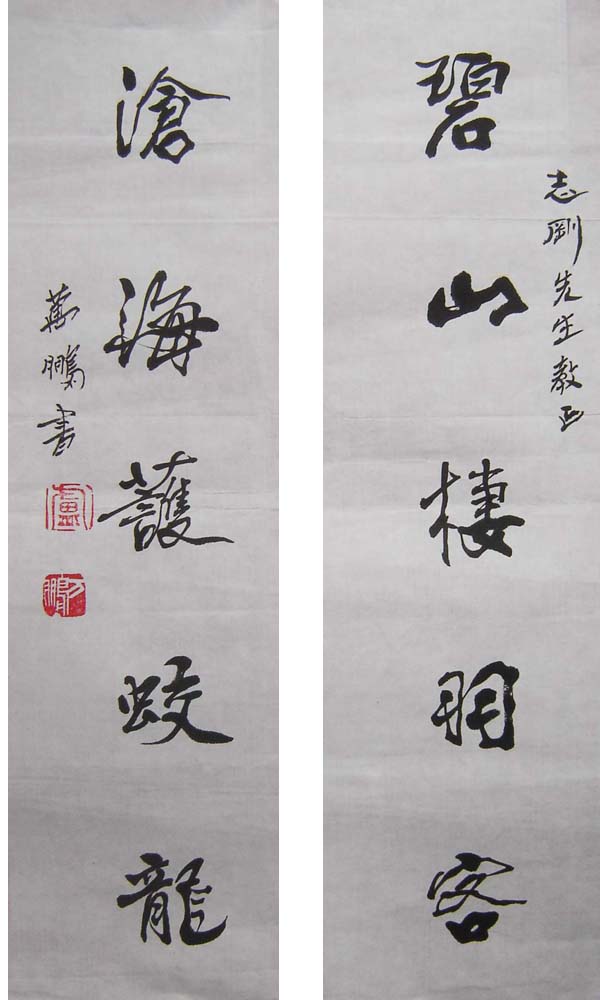 志剛先生教正
碧山棲羽客
滄海護蛟龍
萬鵬書
盧
万鵬